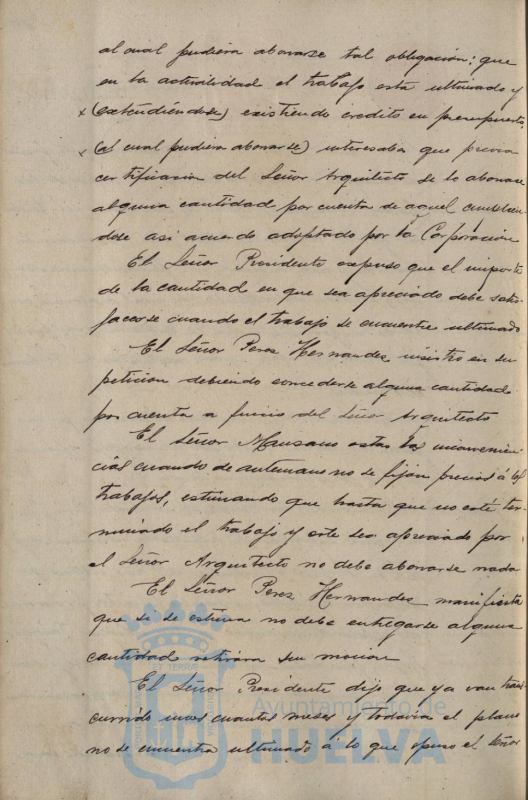 al cual pudiera abonarse tal obligación; que
en la actualidad el trabajo está ultimado y
x (extendiéndose) existiendo credito en presupuesto
x (al cual pudiera abonarse) interesaba que previa
certificacion del Señor Arquitecto se le abonase
alguna cantidad por cuenta de aquel cumplien
dose asi acuerdo adoptado por la Corporación
El Señor Presidente expuso que el importe
de la cantidad en que sea apreciado debe satis-
facerse cuando el trabajo se encuentre ultimado
El Señor Perez Hernandez insistio en su
peticion debiendo concederse alguna cantidad
por cuenta a juicio del Señor Arquitecto
El Señor Manzano estas las inconvenien
cias cuando de antemano no se fijan precios á los
trabajos, estimando que hasta que no esté ter-
minado el trabajo y este sea apreciado por
el Señor Arquitecto no debe abonarse nada
El Señor Perez Hernandez manifiesta
que si se estima no debe entregarse alguna
cantidad retirara su mocion
El Señor Presidente dijo que ya van tras-
currido unos cuantos meses y todavia el plano
no se encuentra ultimado á lo que opuso el Señor
Ayuntamiento de
HUELVA